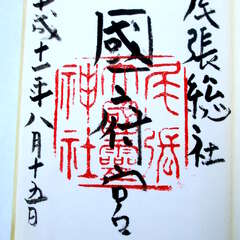 尾張総社
國府宮
平成十一年八月十五日
尾張
神社